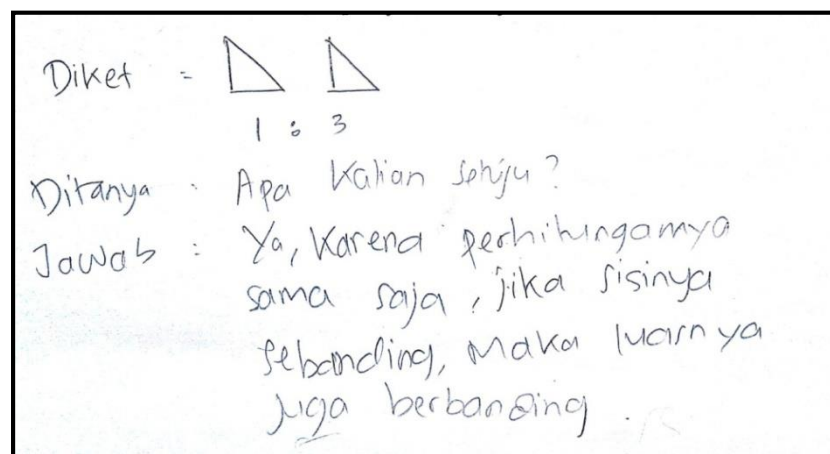 Diket =
1 : 3
Ditanya : Apa kalian setuju?
Jawab : Ya, Karena perhitungannya
sama saja, jika sisinya
sebanding, maka luasnya
juga berbanding.